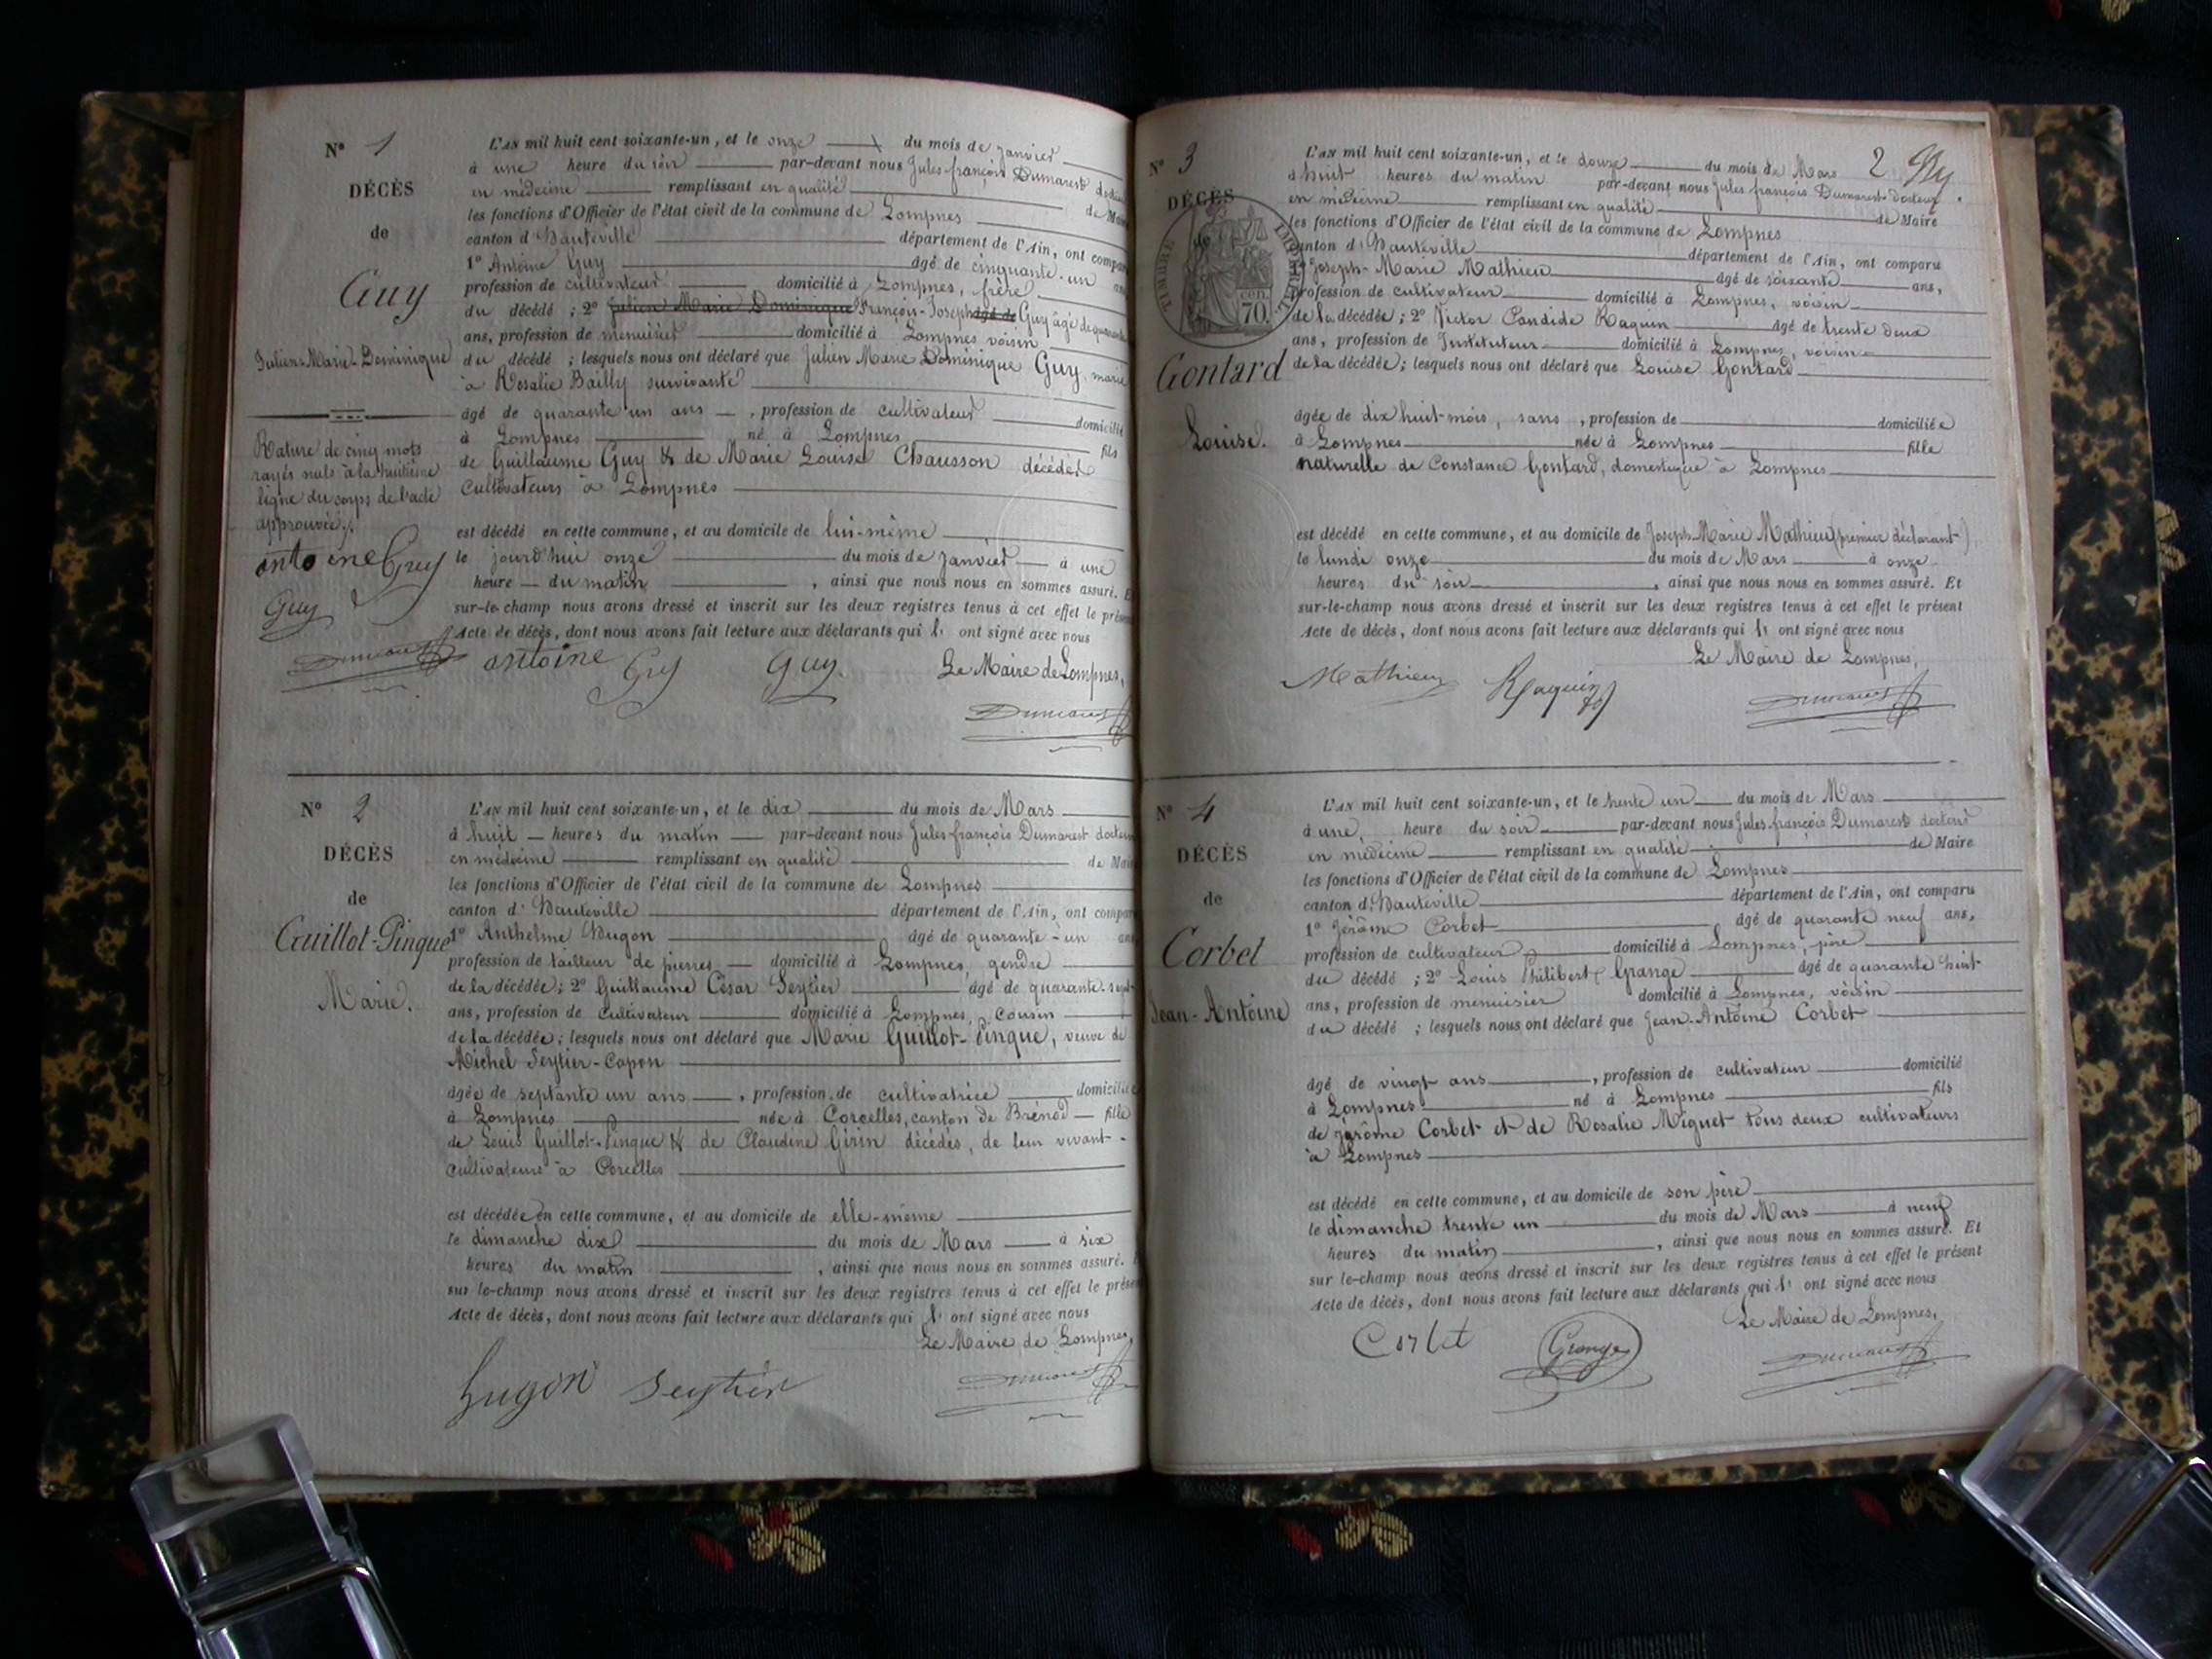 N° 1
DÉCÈS
de
Guy
Julien-Marie-Dominique
Rature de cinq mots
rayés nuls à la huitième
ligne du corps de l'acte
approuvée.
antoine Guy
Guy
Dumarest
L'AN mil huit cent soixante-un, et le onze du mois de janvier
à une heure du soir par-devant nous Jules françois Dumarest docteur
en médecine remplissant en qualité de Maire
les fonctions d'Officier de l'état civil de la commune de Lompnes
canton d'Hauteville département de l'Ain, ont comparu
1° Antoine Guy âgé de cinquante-un ans
profession de cultivateur domicilié à Lompnes, frère
du décédé ; 2° Julien Marie Dominique François-Joseph âgé de Guy âgé de quarante
ans, profession de menuisier domicilié à Lompnes voisin
du décédé ; lesquels nous ont déclaré que Julien Marie Dominique Guy, marié
à Rosalie Bailly survivante
âgé de quarante un ans, profession de cultivateur domicilié
à Lompnes né à Lompnes fils
de Guillaume Guy & de Marie Louise Chausson décédés
cultivateurs à Lompnes
est décédé en cette commune, et au domicile de lui-même
le jourd'hui onze du mois de janvier à une
heure du matin, ainsi que nous nous en sommes assuré. Et
sur-le-champ nous avons dressé et inscrit sur les deux registres tenus à cet effet le présent
Acte de décès, dont nous avons fait lecture aux déclarants qui l' ont signé avec nous
Le Maire de Lompnes,
antoine Guy Guy. Dumarest
N° 2
DÉCÈS
de
Guillot-Pingue
Marie.
L'AN mil huit cent soixante-un, et le dix du mois de Mars
à huit heures du matin par-devant nous Jules françois Dumarest docteur
en médecine remplissant en qualité de Maire
les fonctions d'Officier de l'état civil de la commune de Lompnes
canton d'Hauteville département de l'Ain, ont comparu
1° Anthelme Hugon âgé de quarante-un ans
profession de tailleur de pierres domicilié à Lompnes, gendre
de la décédée ; 2° Guillaume César Seytier âgé de quarante-sept
ans, profession de Cultivateur domicilié à Lompnes, cousin
de la décédée ; lesquels nous ont déclaré que Marie Guillot-Pingue, veuve de
Michel Seytier-Capon
âgée de septante un ans, profession de cultivatrice domiciliée
à Lompnes née à Corcelles, canton de Brénod fille
de Louis Guillot-Pingue & de Claudine Girin décédés, de leur vivant
cultivateurs à Corcelles
est décédée en cette commune, et au domicile de elle-même
le dimanche dix du mois de Mars à six
heures du matin, ainsi que nous nous en sommes assuré. Et
sur le-champ nous avons dressé et inscrit sur les deux registres tenus à cet effet le présent
Acte de décès, dont nous avons fait lecture aux déclarants qui l' ont signé avec nous
Le Maire de Lompnes,
hugon Seytier Dumarest
2
N° 3
DÉCÈS
de
TIMBRE IMPERIAL
70 cen.
Gontard
Louise.
L'AN mil huit cent soixante-un, et le douze du mois de Mars
à huit heures du matin par-devant nous Jules françois Dumarest docteur
en médecine remplissant en qualité de Maire
les fonctions d'Officier de l'état civil de la commune de Lompnes
canton d'Hauteville département de l'Ain, ont comparu
1° Joseph-Marie Mathieu âgé de soixante ans,
profession de cultivateur domicilié à Lompnes, voisin
de la décédée ; 2° Victor Candide Raquin âgé de trente deux
ans, profession de Instituteur domicilié à Lompnes, voisin
de la décédée ; lesquels nous ont déclaré que Louise Gontard
âgée de dix huit mois, sans, profession de domiciliée
à Lompnes née à Lompnes fille
naturelle de Constance Gontard, domestique à Lompnes
est décédé en cette commune, et au domicile de Joseph-Marie Mathieu (premier déclarant)
le lundi onze du mois de Mars à onze
heures du soir, ainsi que nous nous en sommes assuré. Et
sur-le-champ nous avons dressé et inscrit sur les deux registres tenus à cet effet le présent
Acte de décès, dont nous avons fait lecture aux déclarants qui l' ont signé avec nous
Le Maire de Lompnes,
Mathieu Raquin Dumarest
N° 4
DÉCÈS
de
Corbet
Jean-Antoine
L'AN mil huit cent soixante-un, et le trente un du mois de Mars
à une heure du soir par-devant nous Jules françois Dumarest docteur
en médecine remplissant en qualité de Maire
les fonctions d'Officier de l'état civil de la commune de Lompnes
canton d'Hauteville département de l'Ain, ont comparu
1° Jérôme Corbet âgé de quarante neuf ans,
profession de cultivateur domicilié à Lompnes, père
du décédé ; 2° Louis Philibert Grange âgé de quarante huit
ans, profession de menuisier domicilié à Lompnes, voisin
du décédé ; lesquels nous ont déclaré que Jean-Antoine Corbet
âgé de vingt ans, profession de cultivateur domicilié
à Lompnes né à Lompnes fils
de Jérôme Corbet et de Rosalie Miguet tous deux cultivateurs
à Lompnes
est décédé en cette commune, et au domicile de son père
le dimanche trente un du mois de Mars à neuf
heures du matin, ainsi que nous nous en sommes assuré. Et
sur le-champ nous avons dressé et inscrit sur les deux registres tenus à cet effet le présent
Acte de décès, dont nous avons fait lecture aux déclarants qui l' ont signé avec nous
Le Maire de Lompnes,
Corbet Grange Dumarest